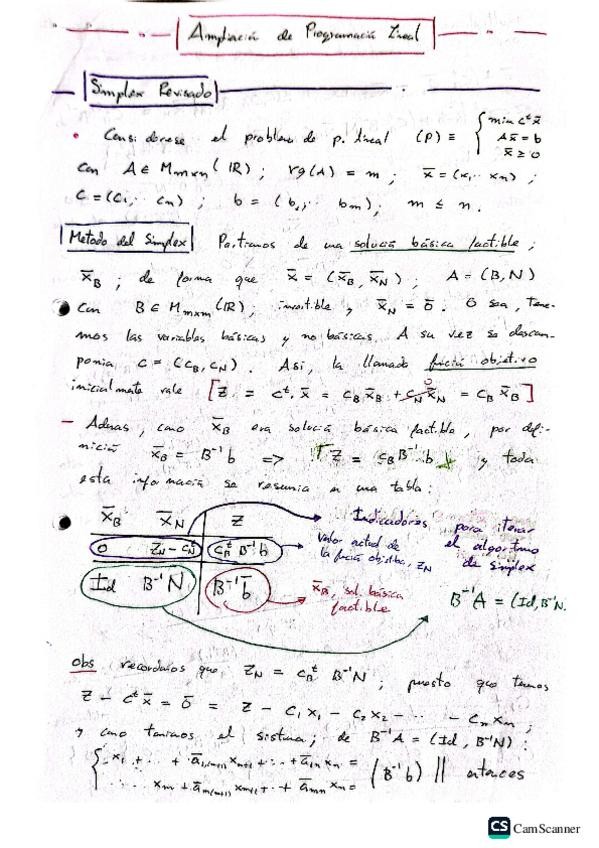 Ampliación de Programación Lineal
Simplex Revisado
• Considerese el problema de p. lineal (P) ≡ { min cᵗx̄
Ax̄ = b
x̄ ≥ 0
con A ∈ Mmxn(IR); rg(A) = m; x̄ = (x₁,.. xn);
C = (C₁,.. cn); b = (b₁,.. bm); m ≤ n.
Metodo del Simplex Partimos de una solución básica factible;
x̄B; de forma que x̄ = (x̄B, x̄N); A = (B, N)
con B ∈ Mmxm(IR); invertible y x̄N = ō. O sea, tene-
mos las variables básicas y no básicas. A su vez se descom-
ponía C = (CB, CN). Así, la llamada función objetivo
inicialmente vale [Z = Cᵗ. x̄ = CB x̄B + CN x̄N 0 = CB x̄B]
— Ademas, como x̄B era solución básica factible, por defi-
nición x̄B = B⁻¹b => Z = CB B⁻¹b y toda
esta información se resumía en una tabla:
x̄B x̄N Z
0 ZN - CNᵗ CBᵗ B⁻¹b
Id B⁻¹N B⁻¹b̄
Indicadores para iterar
el algoritmo
de simplex
Valor actual de
la función objetivo, ZN
x̄B, sol. básica
factible
B⁻¹A = (Id, B⁻¹N.
Obs recordamos que ZN = CBᵗ B⁻¹N; puesto que temos
Z - Cᵗx̄ = ō = Z - C₁x₁ - C₂x₂ - ... - Cnxn;
y como teniamos el sistema; de B⁻¹A = (Id, B⁻¹N):
{ x₁ + .. + ā₁,(m+1) xm+1 + .. + ā₁n xn =
... xm + ām(m+1) xm+1 + .. + āmn xn = (B⁻¹b) || entonces
CS CamScanner